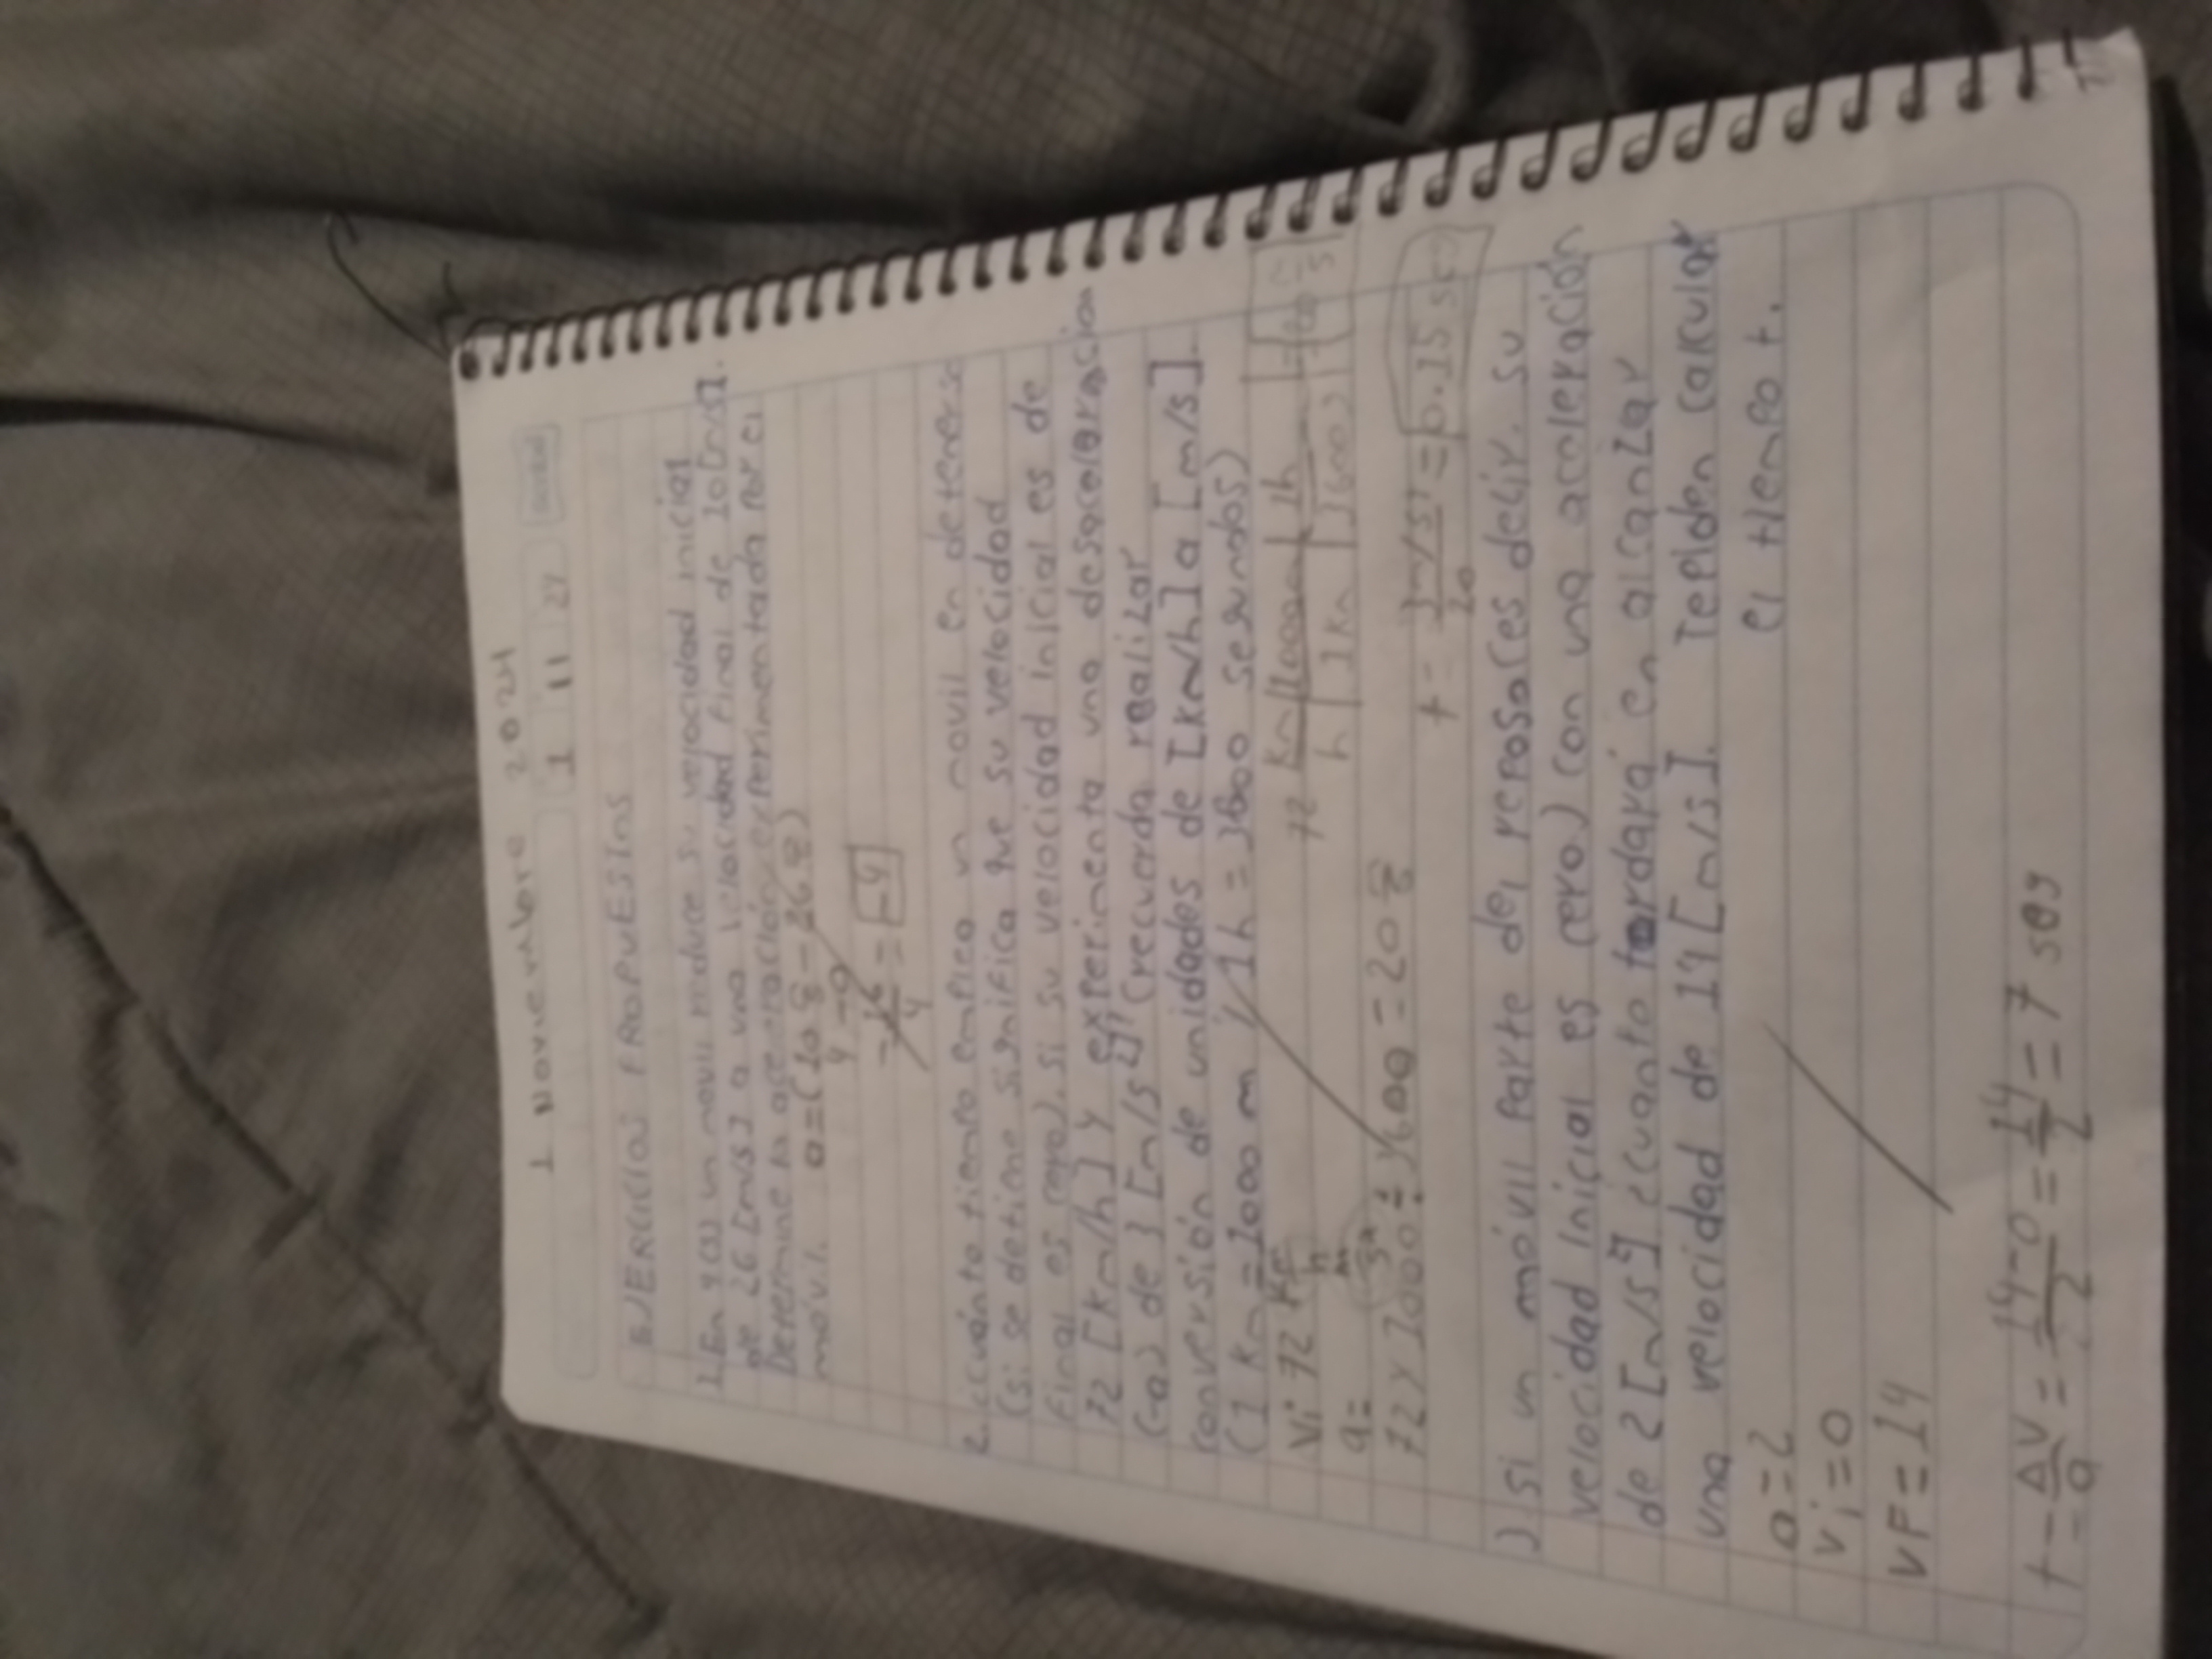 1 Noviembre 2024
1 11 24
EJERCICIOS PROPUESTOS
1. En 4(s) un movil reduce su velocidad inicial
de 26 [m/s] a una velocidad final de 10[m/s].
Determine la aceleración experimentada por el
móvil. a=(10
4-0
4 = -4
2. ¿cuánto tiempo emplea un movil en detenerse
(si se detiene significa que su velocidad
Final es cero). si su velocidad inicial es de
72 [km/h] y experimenta una desaceleracion
(-a) de 3 [m/s²]? (recuerda realizar
conversión de unidades de [km/h] a [m/s].
(1 km = 1000 m y 1h = 3600 segundos)
Vi 72 km/h 72 km 1000m 1h
h 1km 3600s
a= m/s²
72 x 1000 ÷ 3600 = 20 t = 3m/s² = 0.15 seg
20
3 si un móvil parte del reposo (es decir, su
velocidad inicial es cero) con una aceleración
de 2 [m/s²] ¿cuanto tardará en alcanzar
una velocidad de 14 [m/s]. Tepiden calcular
el tiempo t.
a=2
Vi=0
VF=14
t = ΔV/a = 14-0/2 = 14/2 = 7 seg